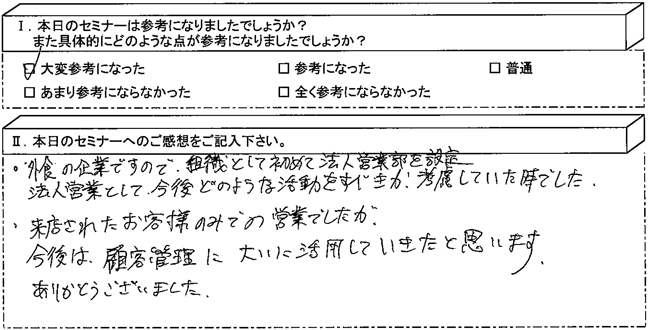 Ⅰ．本日のセミナーは参考になりましたでしょうか？
また具体的にどのような点が参考になりましたでしょうか？
☑ 大変参考になった □ 参考になった □ 普通
□ あまり参考にならなかった □ 全く参考にならなかった
Ⅱ．本日のセミナーへのご感想をご記入下さい。
・外食の企業ですので、組織として初めて法人営業部を設定
法人営業として、今後どのような活動をすべきか、考慮していた時でした。
・来店されたお客様のみでの営業でしたが、
今後は、顧客管理に大いに活用していきたと思います。
ありがとうございました。